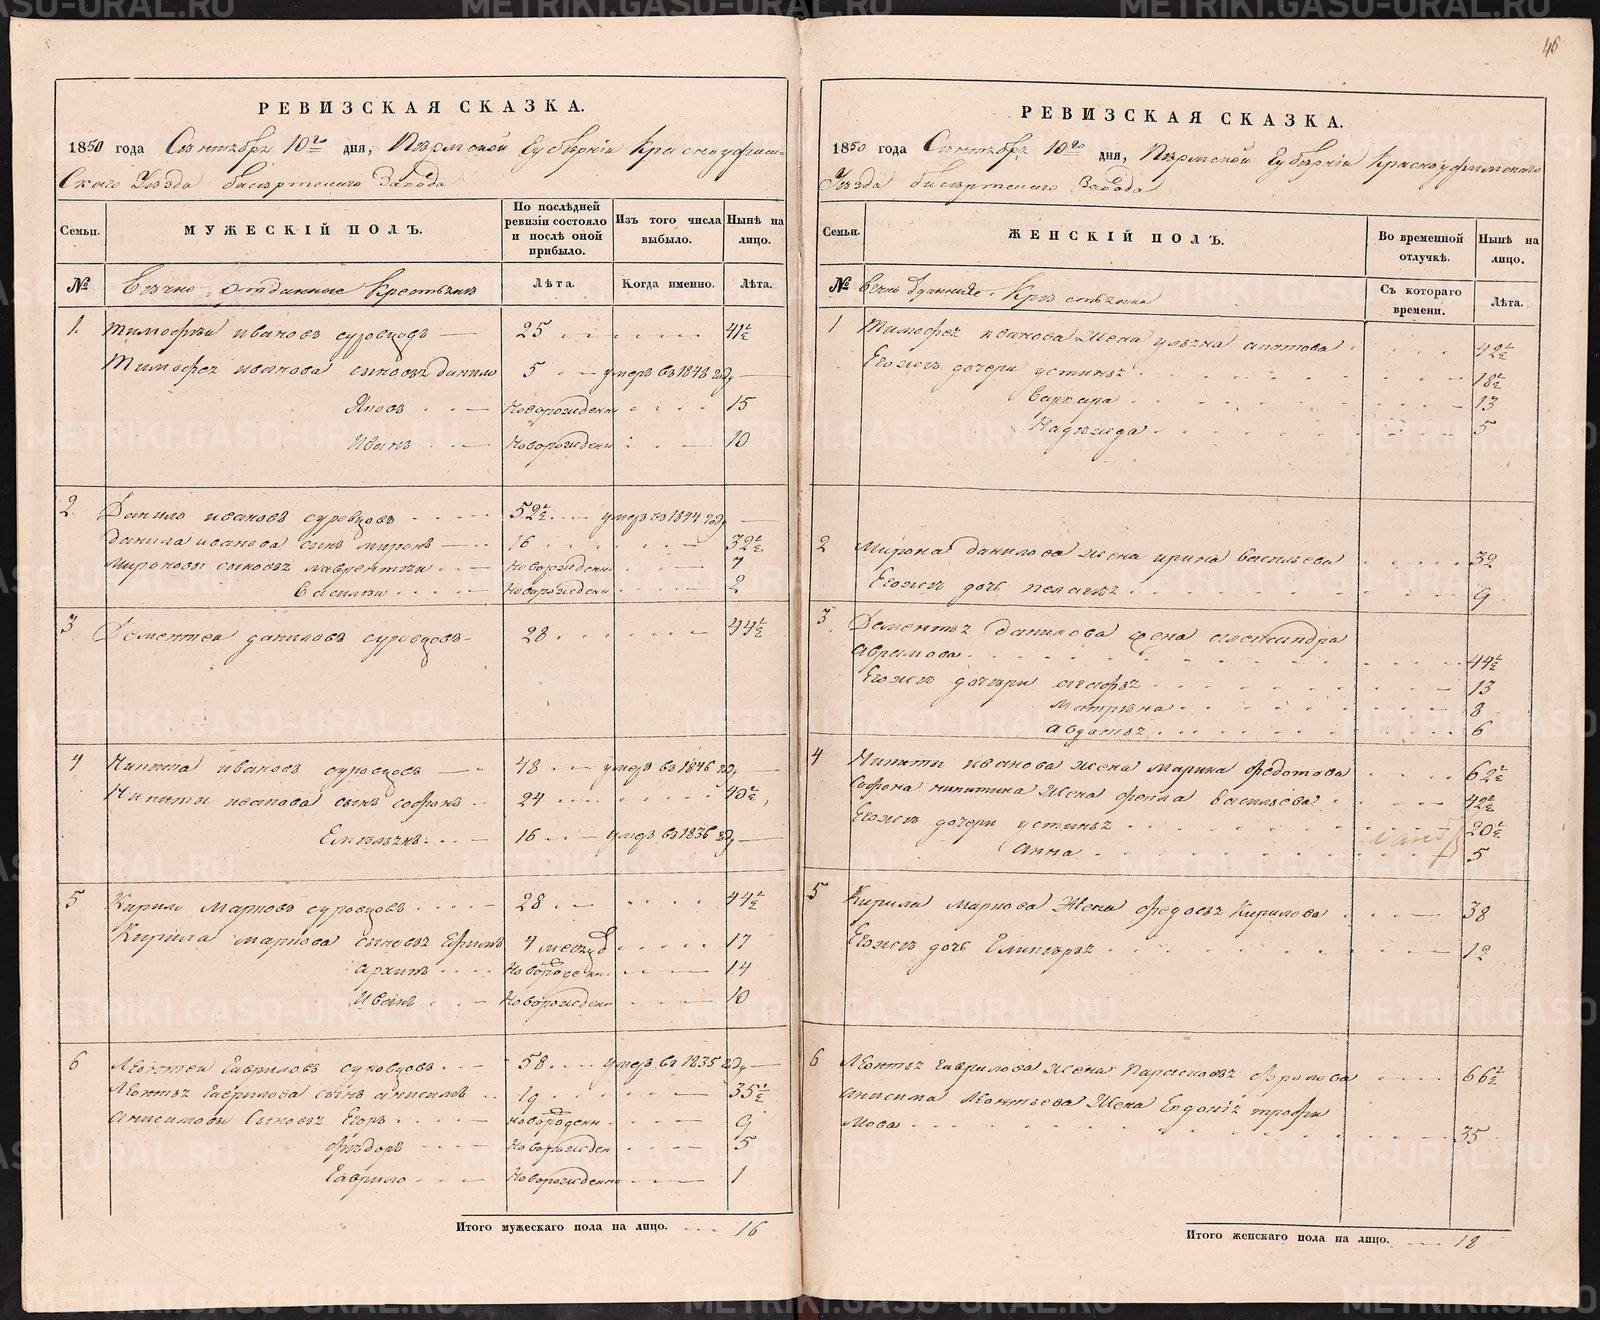 46
РЕВИЗСКАЯ СКАЗКА.
1850 года Сентября 10го дня, Пермской Губѣрніи Красноуфим-
Скаго Уѣзда бисѣртскаго Завода
Семьи.
МУЖЕСКІЙ ПОЛЪ.
По послѣдней ревизіи состояло и послѣ оной прибыло.
Изъ того числа выбыло.
Нынѣ на лицо.
№
Вѣчно отданные Крестьянѣ
Лѣта.
Когда именно.
Лѣта.
1. Тимофѣи ивановъ суровцовъ 25 41½
Тимофея иванова сыновья данило 5 умеръ въ 1848 году
Яковъ Новорожденн 15
Иванъ Новорожденн 10
2 Данило ивановъ суровцовъ 52½ умеръ въ 1844 году
данила иванова сынъ миронъ 16 32½
Мироновы сыновья лаврентѣи Новорожденн 7
Василѣи Новорожденн 2
3 Дементеи даниловъ суровцовъ 28 44½
4 Никита ивановъ суровцовъ 48 умеръ въ 1846 году
Никиты иванова сынъ софронъ 24 40½
Емельянъ 16 умеръ въ 1836 году
5 Кирило марковъ суровцовъ 28 44½
Кирила маркова сыновья Ефимъ 4 месяцо 17
архипъ Новорожденн 14
Иванъ Новорожденн 10
6 Леонтеи Гавриловъ суровцовъ 58 умеръ въ 1835 году
Леонтья Гаврилова сынъ анисимъ 19 35½
анисимовы Сыновья Егоръ новорожденн 9
фѣдоръ Новорожден 5
Гаврило Новорожденн 1
Итого мужескаго пола на лицо. 16
РЕВИЗСКАЯ СКАЗКА.
1850 года Сентября 10го дня, Пермской Губѣрніи Красноуфимскаго
Уѣзда бисѣртскаго Завода
Семьи.
ЖЕНСКІЙ ПОЛЪ.
Во временной отлучкѣ.
Нынѣ на лицо.
№
Съ котораго времени.
Лѣта.
1 Тимофея иванова жена ульяна 42½
Егожъ дочери устинья 18½
Варвара 13
Надѣжда 5
2 Мирона данилова жена ирина Васильева 32
Егожъ дочь пелагѣя 9
3 Дементья данилова жена александра
аврамова 44½
Егожъ дочѣри агафья 13
Матрѣна 8
авдотья 6
4 Никиты иванова жена Марина федотова 62½
Софрона никитина Жена фекла Васильева 42½
Егожъ дочери устинья 20½
анна 5
5 Кирила маркова Жена федосья Кирилова 38
Егожъ дочь 12
6 Леонтья Гаврилова жена Парасковья фролова 66½
анисима Леонтьева Жена трофи
мова 35
Итого женскаго пола на лицо. 18
METRIKI.GASO-URAL.RU